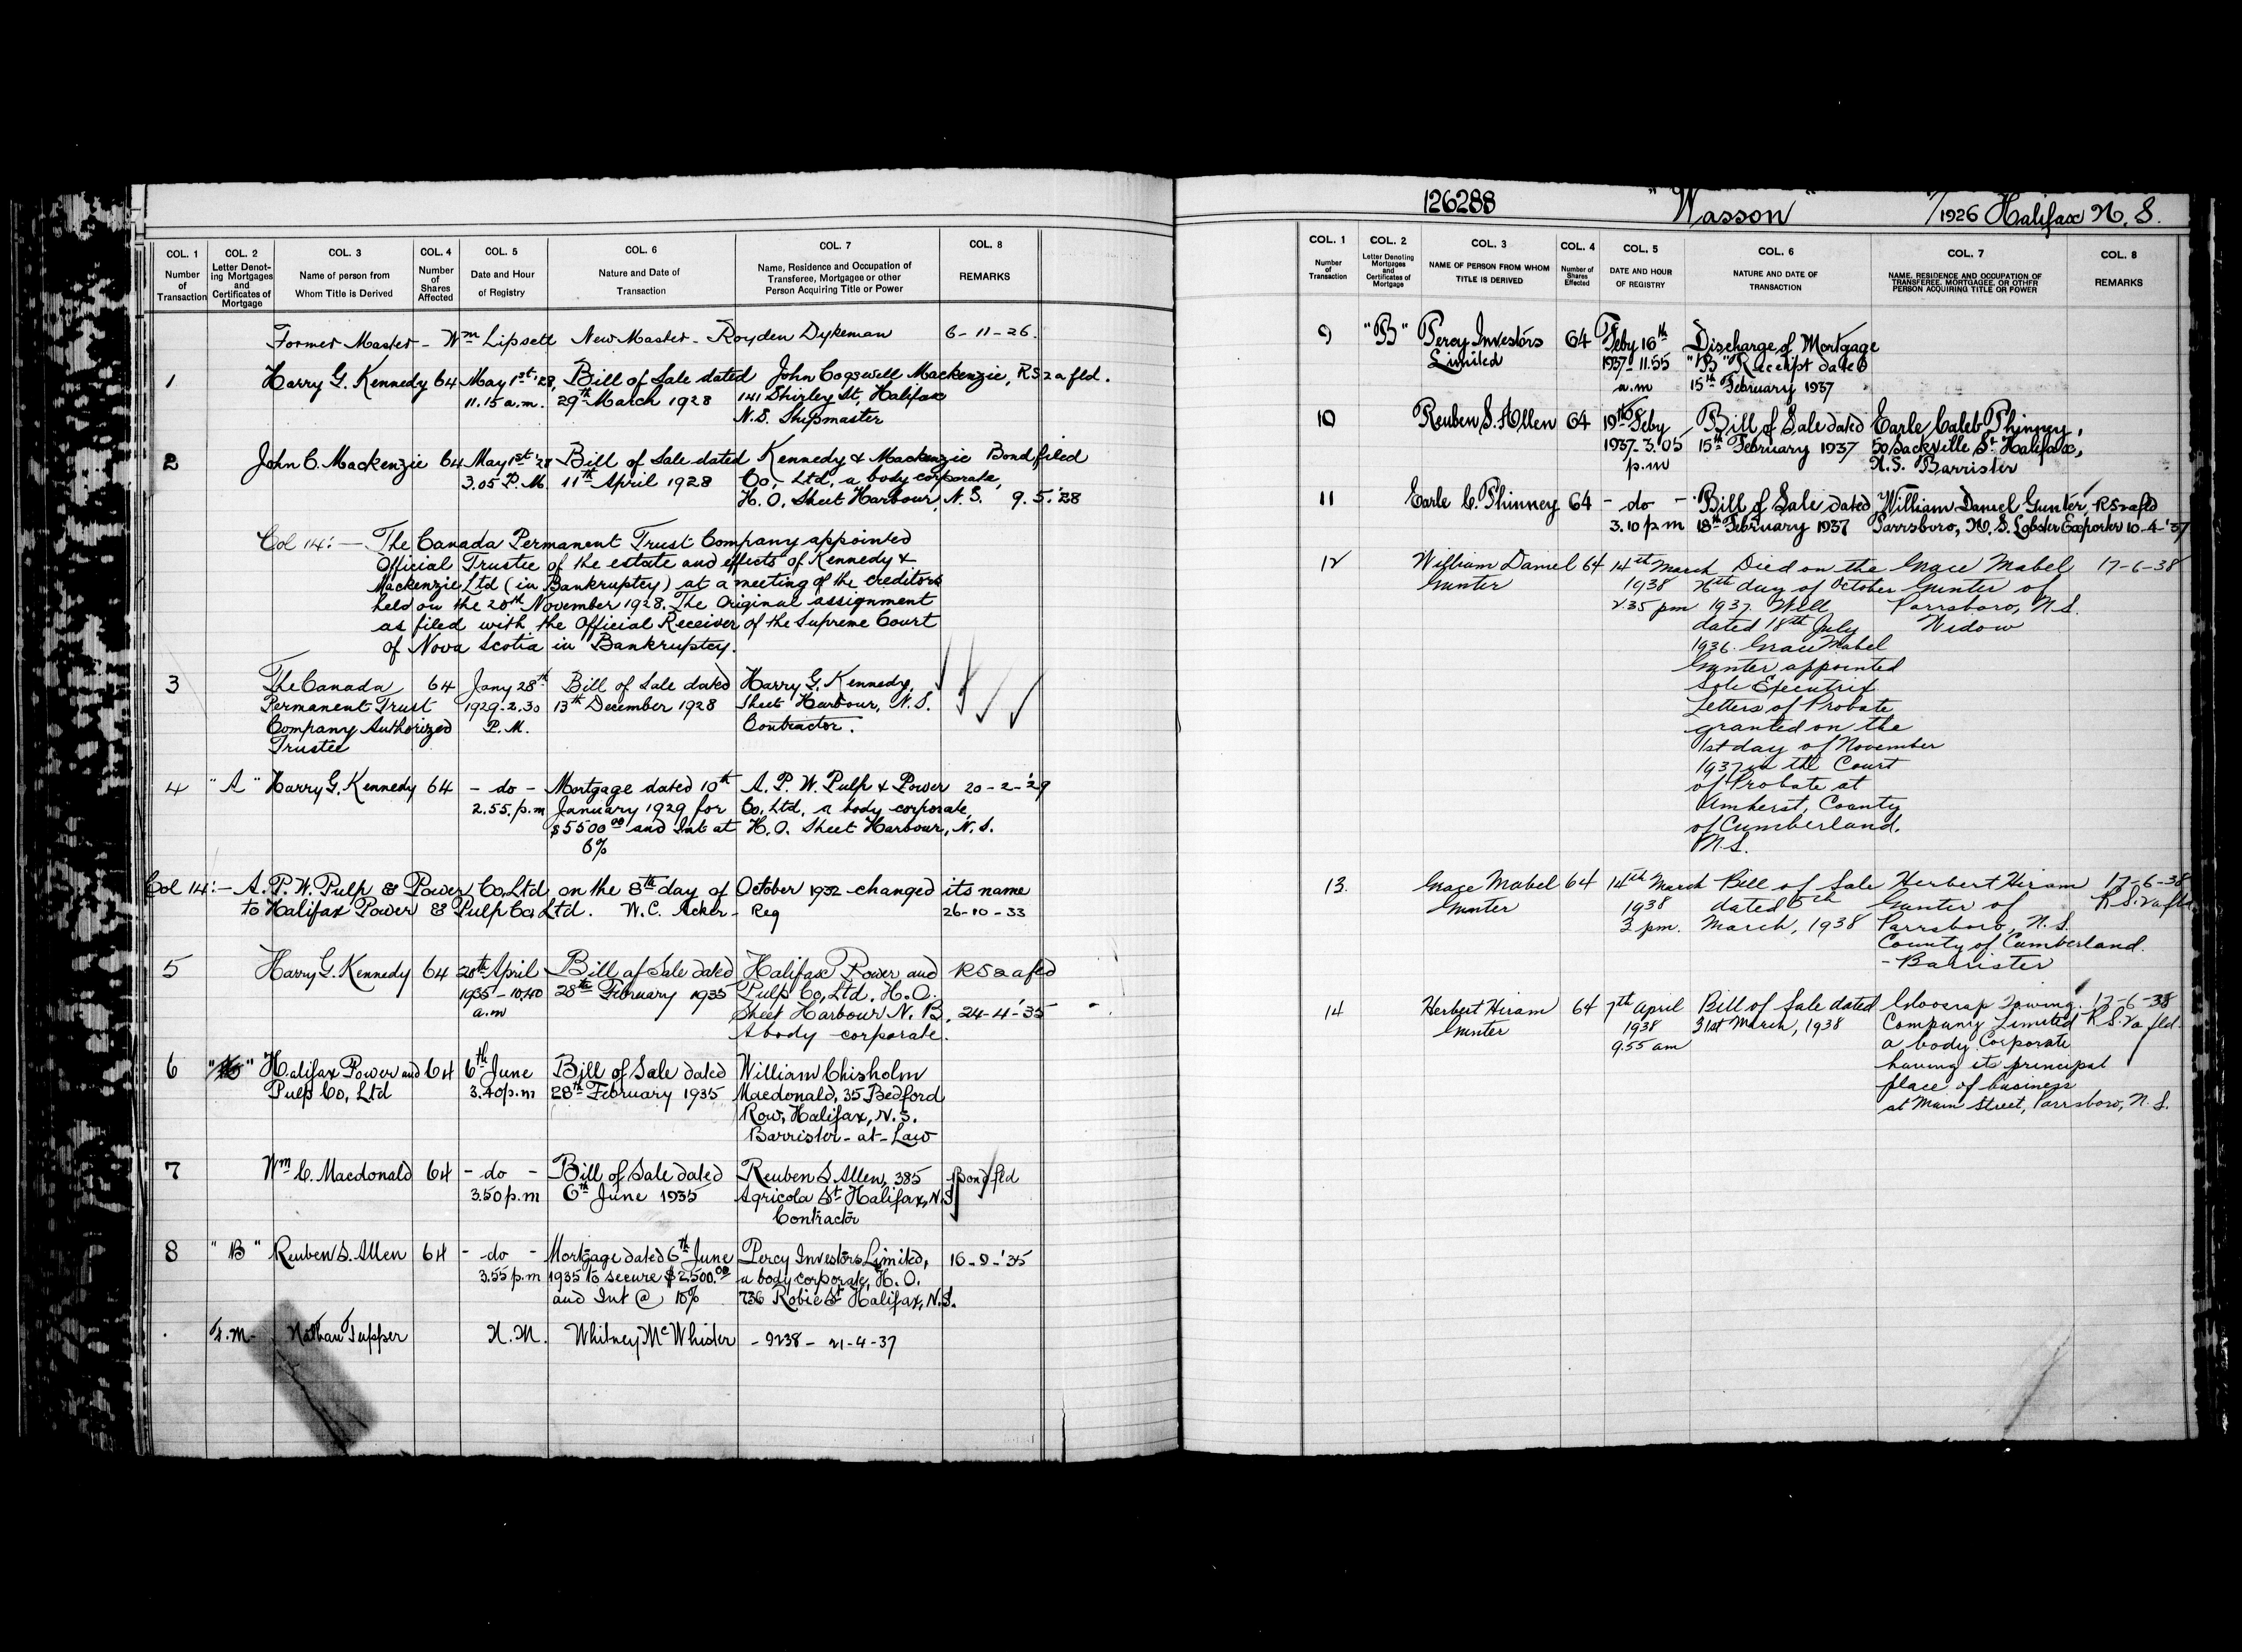 COL. 1 COL. 2 COL. 3 COL. 4 COL. 5 COL. 6 COL. 7 COL. 8
Number of Transaction
Letter Denoting Mortgages and Certificates of Mortgage
Name of person from Whom Title is Derived
Number of Shares Affected
Date and Hour of Registry
Nature and Date of Transaction
Name, Residence and Occupation of Transferee, Mortgagee or other Person Acquiring Title or Power
REMARKS
Former Master - Wm Lipsett New Master - Royden Dykeman 6-11-26.
1 Harry G. Kennedy 64 May 1st '28, Bill of Sale dated John Cogswell Mackenzie, RS2a fld.
11.15 a.m. 29th March 1928 141 Shirley St, Halifax
N.S. Shipmaster
2 John C. Mackenzie 64 May 1st '28 Bill of Sale dated Kennedy & Mackenzie Bond filed
3.05 P.M. 11th April 1928 Co, Ltd, a body corporate,
H.O. Sheet Harbour, N.S. 9.5.'28
Col 14:- The Canada Permanent Trust Company appointed
Official Trustee of the estate and effects of Kennedy &
Mackenzie Ltd (in Bankruptcy) at a meeting of the creditors
held on the 20th November 1928. The Original assignment
as filed with the Official Receiver of the Supreme Court
of Nova Scotia in Bankruptcy.
3 The Canada 64 Jany 28th Bill of Sale dated Harry G. Kennedy,
Permanent Trust 1929-2.30 13th December 1928 Sheet Harbour, N.S.
Company Authorized P.M. Contractor.
Trustee
4 "A" Harry G. Kennedy 64 - do - Mortgage dated 10th A.P.W. Pulp & Power 20-2-'29
2.55.p.m January 1929 for Co, Ltd, a body corporate,
$5500 00 and Int at H.O. Sheet Harbour, N.S.
6%
Col 14:- A.P.W. Pulp & Power Co, Ltd, on the 8th day of October 1932 changed its name
to Halifax Power & Pulp Co, Ltd. W.C. Acker - Reg 26-10-33
5 Harry G. Kennedy 64 20th April Bill of Sale dated Halifax Power and RS2a fld
1935-10.40 28th February 1935 Pulp Co, Ltd. H.O.
a.m Sheet Harbour N.B. 24-4-'35
A body corporate.
6 Halifax Power and 64 6th June Bill of Sale dated William Chisholm
Pulp Co, Ltd 3.40p.m 28th February 1935 Macdonald, 35 Bedford
Row, Halifax, N.S.
Barrister-at-Law
7 Wm C. Macdonald 64 - do - Bill of Sale dated Reuben S Allen, 385 Bond fld
3.50p.m 6th June 1935 Agricola St Halifax, N.S
Contractor
8 "B" Reuben S. Allen 64 - do - Mortgage dated 6th June Percy Investors Limited,
3.55 p.m 1935 to secure $2500.00 a body corporate, H.O.
and Int @ 10% 736 Robie St Halifax, N.S.
Nathan Tupper N.M. Whitney McWhister - 9238 - 21-4-37
126288 "Wasson" 7/1926 Halifax N.S.
COL. 1 COL. 2 COL. 3 COL. 4 COL. 5 COL. 6 COL. 7 COL. 8
Number of Transaction
Letter Denoting Mortgages and Certificates of Mortgage
NAME OF PERSON FROM WHOM TITLE IS DERIVED
Number of Shares Effected
DATE AND HOUR OF REGISTRY
NATURE AND DATE OF TRANSACTION
NAME, RESIDENCE AND OCCUPATION OF TRANSFEREE, MORTGAGEE, OR OTHER PERSON ACQUIRING TITLE OR POWER
REMARKS
9 "B" Percy Investors 64 Feby 16th Discharge of Mortgage
Limited 1937-11.55 "B" Receipt dated
a.m 15th February 1937
10 Reuben S. Allen 64 19th Feby Bill of Sale dated Earle Caleb Phinney,
1937-3.05 15th February 1937 50 Sackville St Halifax,
p.m N.S. Barrister
11 Earle C. Phinney 64 - do - Bill of Sale dated William Daniel Gunter, RS2a fld
3.10 p m 18th February 1937 Parrsboro, N.S. Lobster Exporter 10-4-'37
12 William Daniel 64 14th March Died on the Grace Mabel 17-6-38
Gunter 1938 26th day of October Gunter of
2.35 pm 1937. Will Parrsboro, N.S.
dated 18th July Widow
1936. Grace Mabel
Gunter appointed
Sole Executrix
Letters of Probate
granted on the
1st day of November
1937 in the Court
of Probate at
Amherst, County
of Cumberland.
N.S.
13. Grace Mabel 64 14th March Bill of Sale Herbert Hiram 17-6-38
Gunter 1938 dated 5th Gunter of R.S.2a fld
3 pm. March, 1938 Parrsboro, N.S.
County of Cumberland.
- Barrister
14 Herbert Hiram 64 7th April Bill of Sale dated Glooscap Towing 17-6-38
Gunter 1938 31st March, 1938 Company Limited R.S.2a fld.
9.55 am a body Corporate
having its principal
place of business
at Main Street, Parrsboro, N.S.